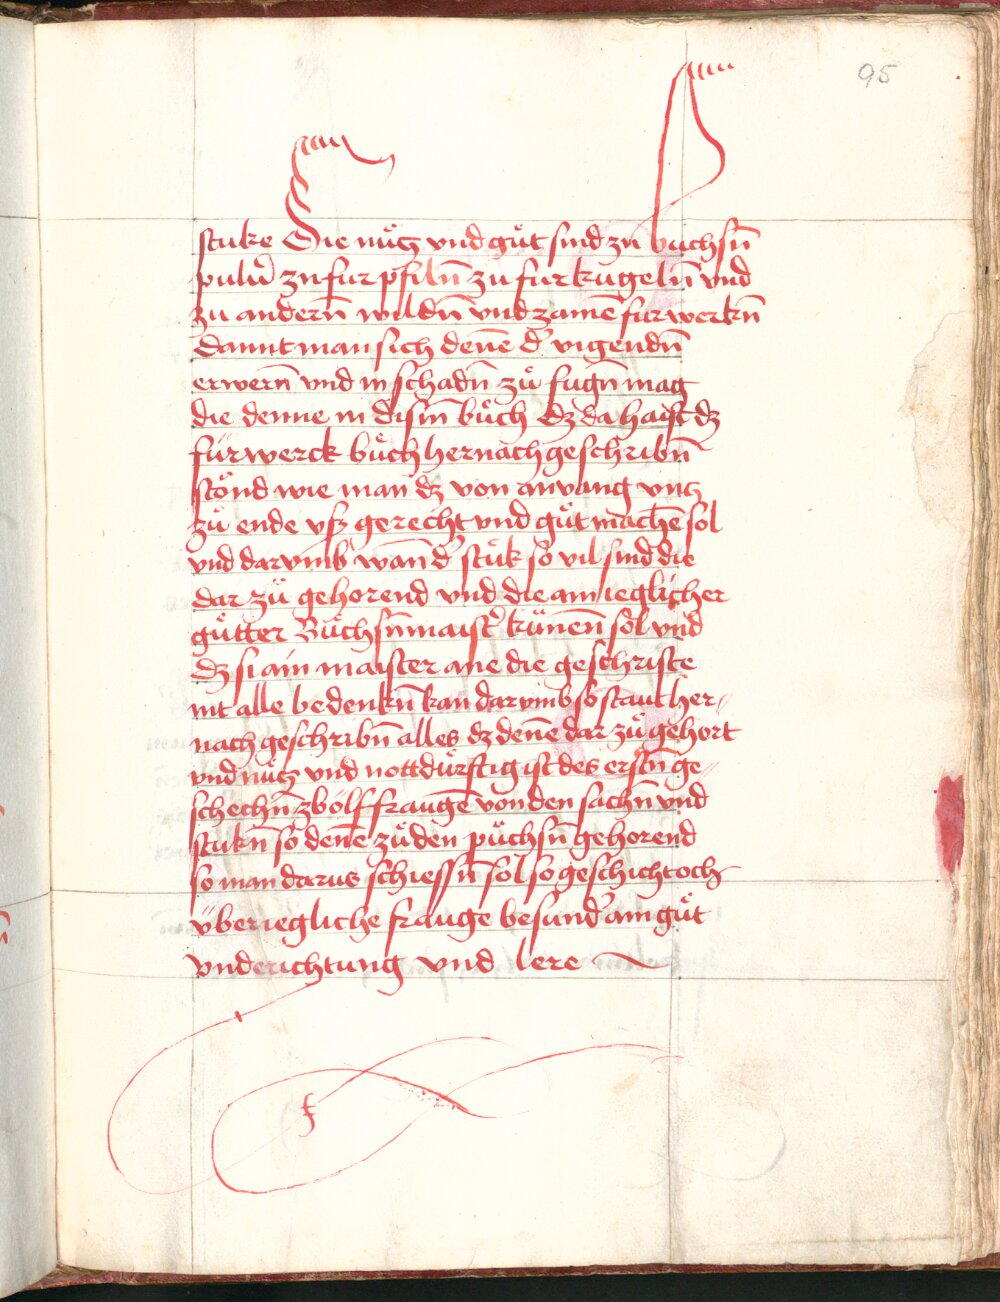 95
stuke Die nu̍tz vnd gu̍t sind zu̍ buchsn̄
pulu̓ zu fur pfiln̄ zu fur kugeln̄ vnd
zu andern̄ wildn̄ vnd zamē furwerkn̄
damit man sich denē d̓ vigendn̄
erwern̄ vnd in schadn̄ zu̍ fugn̄ mag
die denne in dism̄ bu̍ch dz da haist dz
fürwerck bu̍ch hernach geschribn̄
stönd wie man dz von anvang vntz
zu̍ ende vsz gerecht vnd gu̍t machē sol
vnd darvmb wān d̓ stuk so vil sind die
dar zu̍ gehorend vnd die ain ieglicher
gu̍tter Büchsn̄maist̓ künēn sol vnd
dz si ain maister ane die geschrifte
nit alle bedenkn̄ kan darvmb so staut her⸗
nach geschribn̄ alles dz denē dar zu̍ gehort
vnd nu̍tz vnd nottdürftig ist des erstn̄ ge⸗
schechn̄ zwölff fraugē von den sachn̄ vnd
stukn̄ so denē zu̍ den püchsn̄ gehorend
so man darus schiessn̄ sol so geschicht och
über iegliche frauge besund̓ ain gu̍t
vnderichtung vnd lere